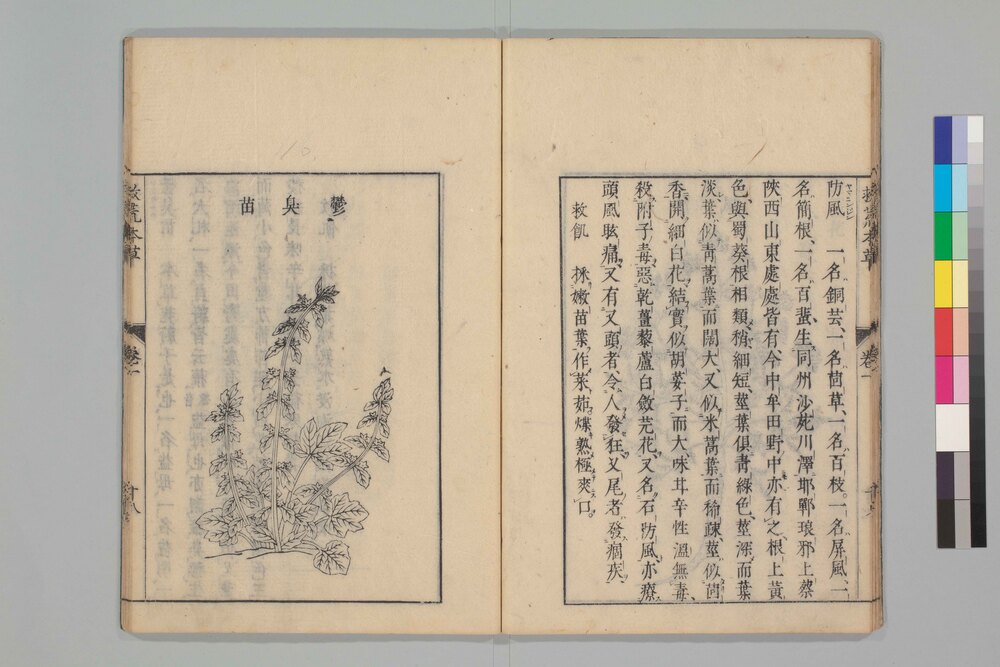 防風 一名銅芸、一名茴草、一名百枝。一名屏風、一
名簡根、一名百蜚、生同州沙苑川澤邯鄲琅邪上蔡
陝西山東處處皆有今中牟田野中亦有之根上黃
色、與蜀葵根相類、稍細短、莖葉俱青綠色、莖深而葉
淡葉似青蒿葉而闊大、又似米蒿葉而稀疎莖似茴
香、開細白花結實似胡荽子而大、味甘辛性溫無毒、
殺附子毒惡乾薑藜蘆白斂芫花、又名石防風亦療
頭風眩痛、又有叉頭者、令人發狂、叉尾者發痼疾、
救飢 採嫩苗葉、作菜茹煠熟極爽口。
救荒本草
卷一
鬱臭苗
救荒本草
卷一
十八